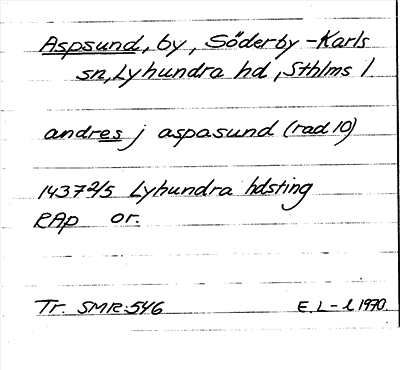 Aspsund, by, Söderby-Karls
sn, Lyhundra hd, Sthlms l
andres j aspasund (rad 10)
1437 2/5 Lyhundra hdsting
RAp or.
Tr. SMR:546 E.L-l 1970.